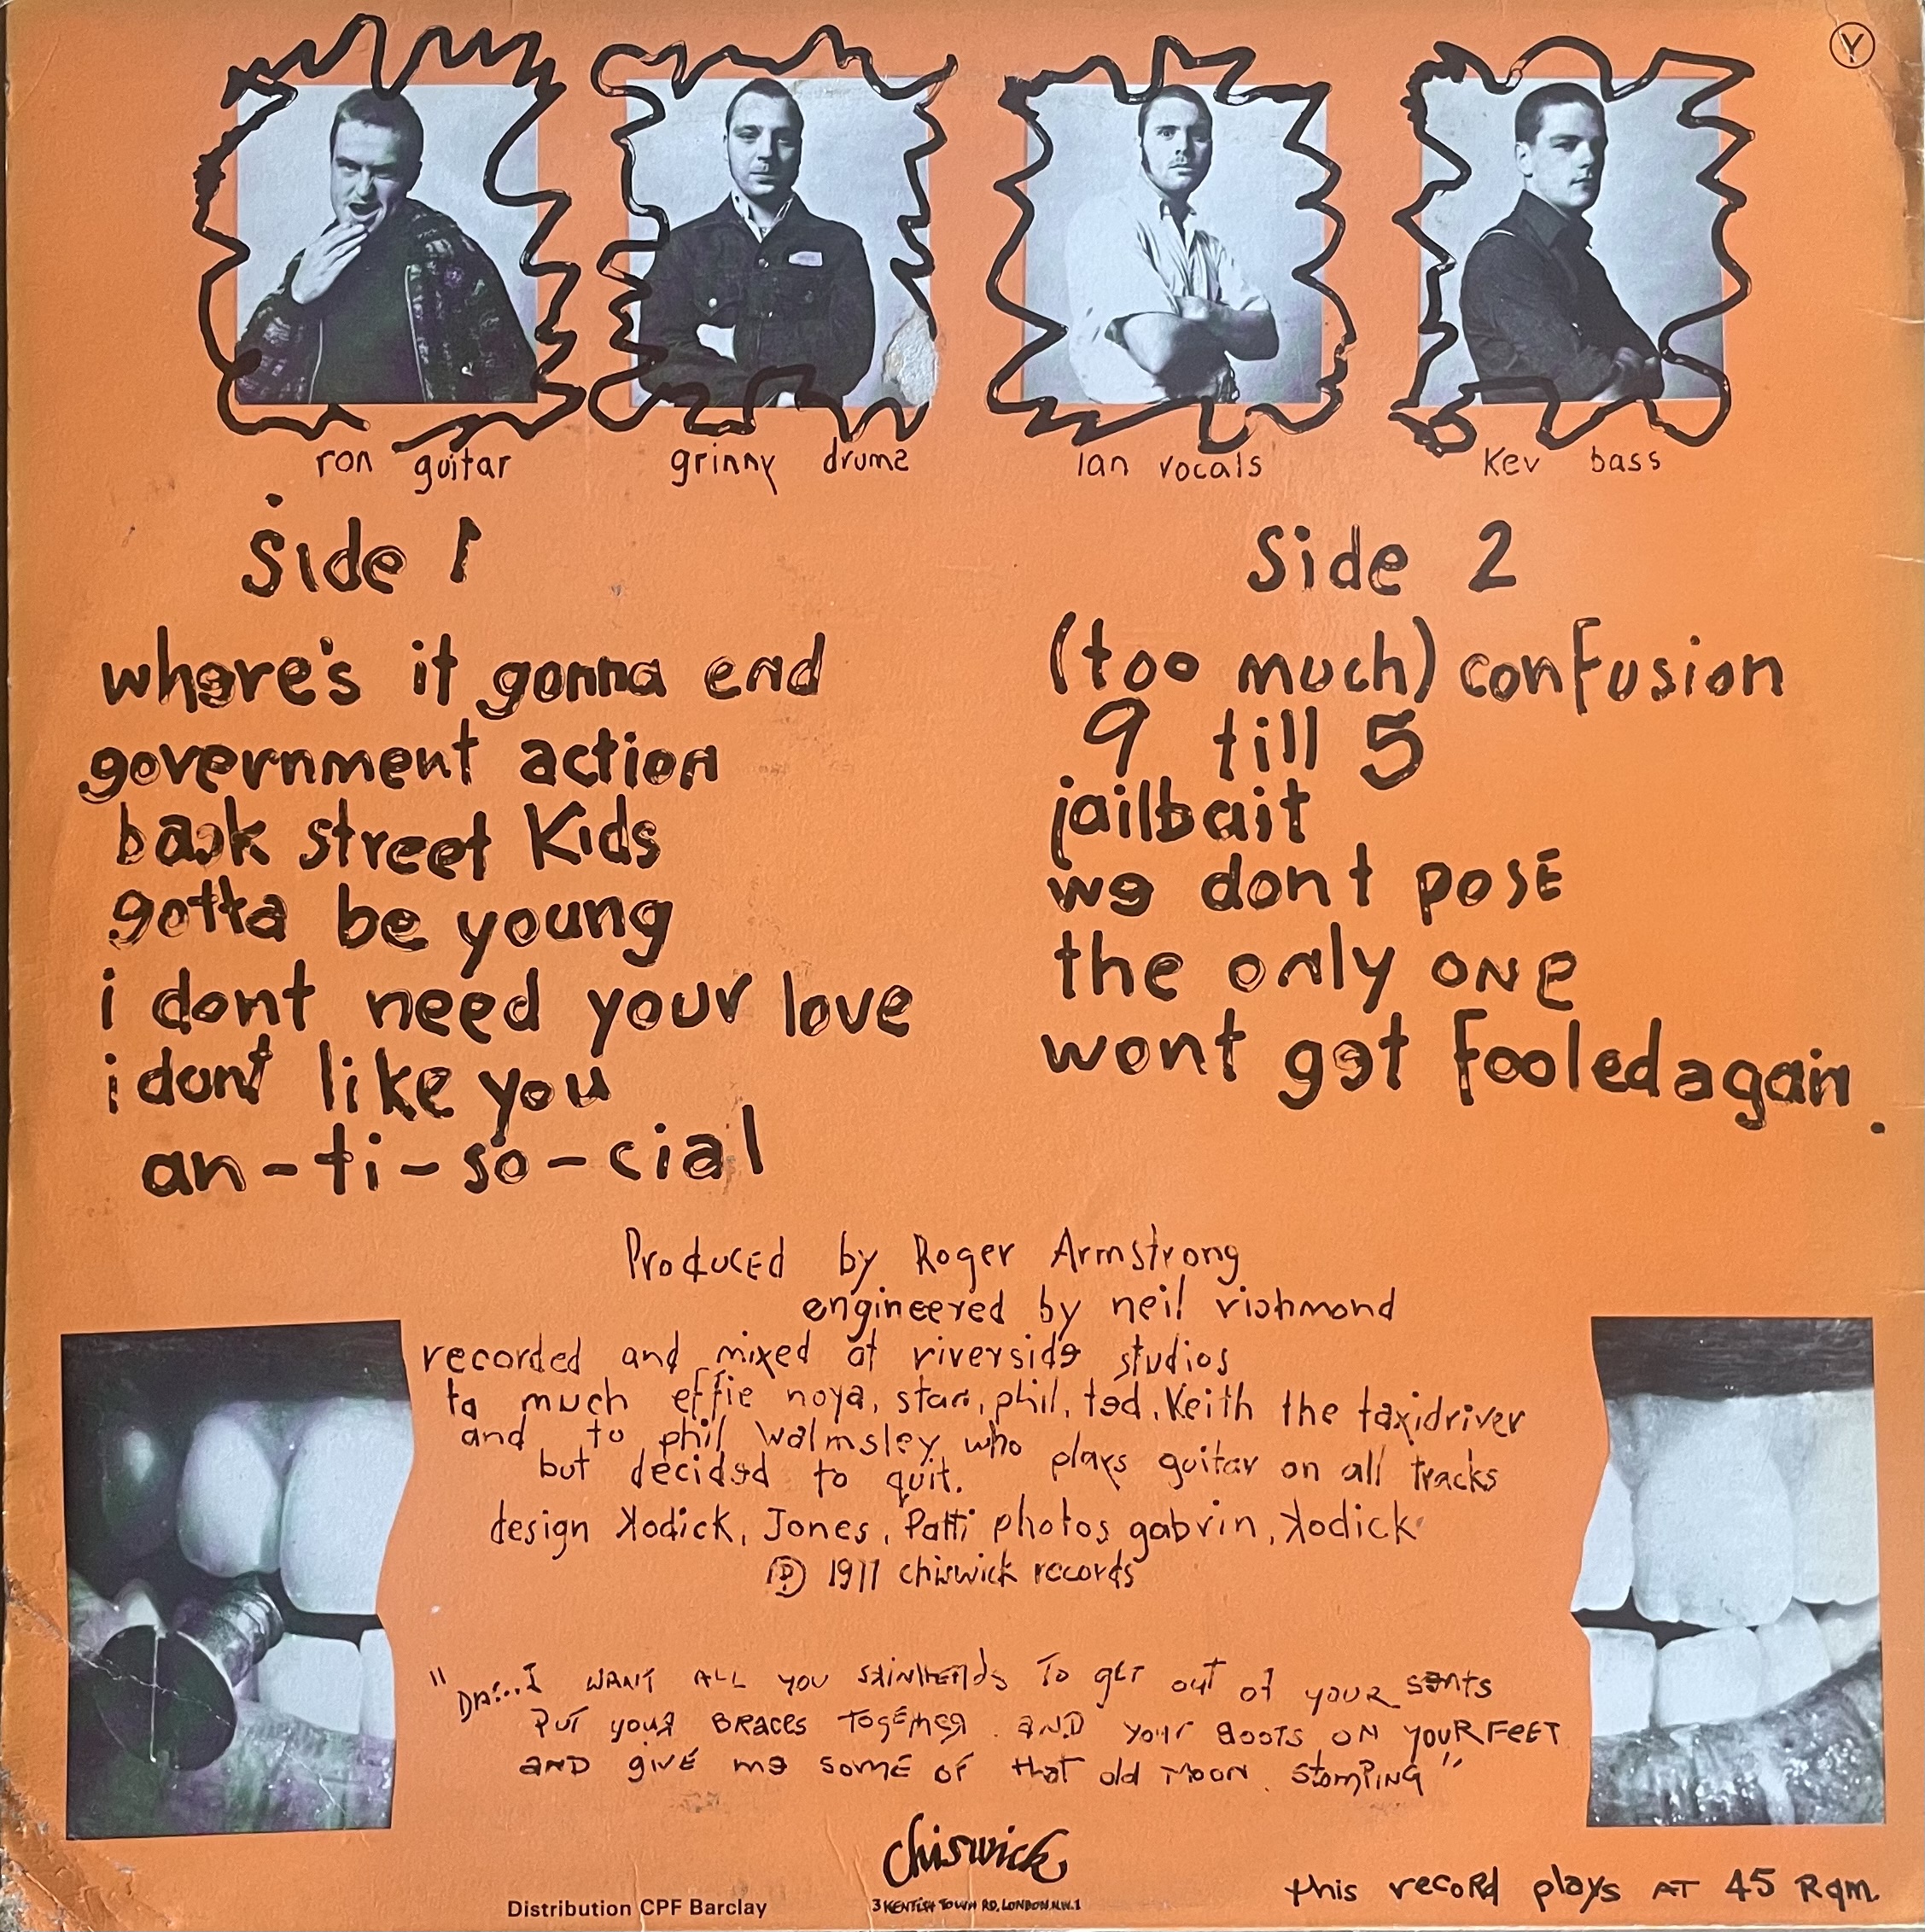 Y
ron guitar
grinny drums
Ian vocals
Kev bass
Side 1
where's it gonna end
government action
back street Kids
gotta be young
i dont need your love
i don't like you
an-ti-so-cial
Side 2
(too much) confusion
9 till 5
jailbait
we dont posE
the only oNe
wont get fooled again.
Produced by Roger Armstrong
engineered by neil richmond
recorded and mixed at riverside studios
ta much effie noya, stan, phil, ted, Keith the taxidriver
and to phil walmsley who plays guitar on all tracks
but decided to quit.
design Kodick, Jones, Patti photos gabrin, Kodick
Ⓟ 1977 chiswick records
" I WANT ALL you skinheads To get out of your seats
PUT your BRACES ToGETHER AND your BOOTS ON YOUR FEET
AND givE me somE OF that old MOON StomPING"
chiswick
3 KENTISH TOWN RD, LONDON.N.W.1
Distribution CPF Barclay
this recoRd plays AT 45 Rpm.